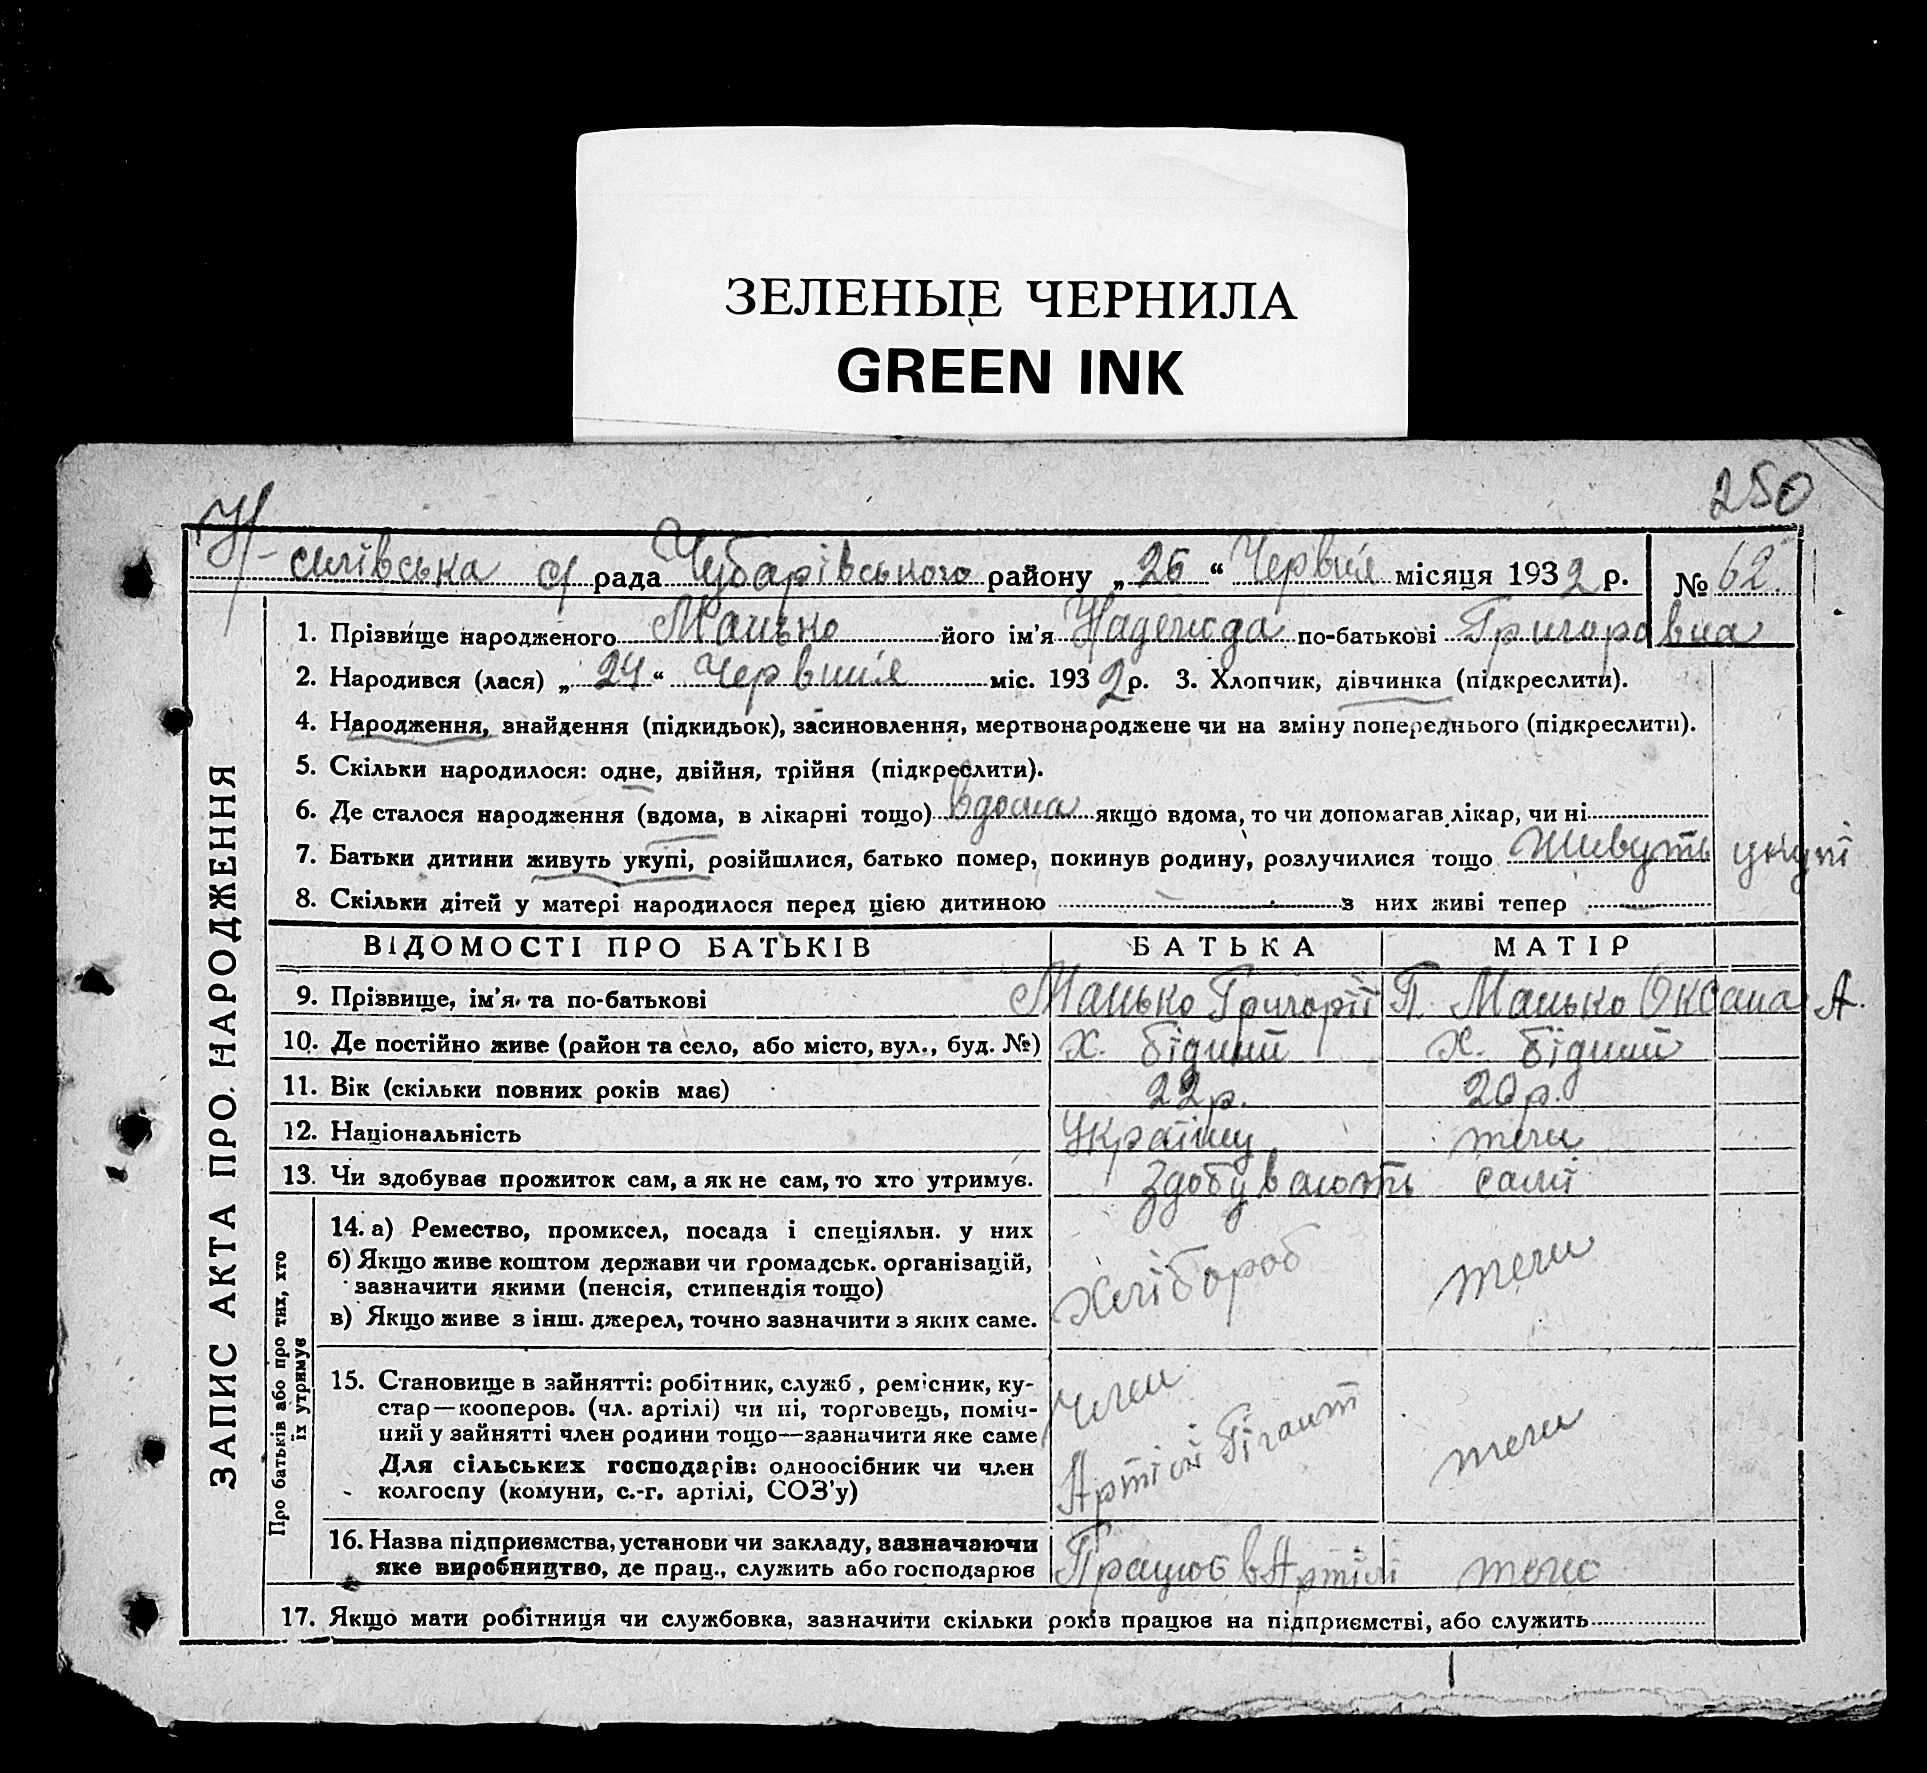 ЗЕЛЕНЫЕ ЧЕРНИЛА
GREEN INK
250
с/ рада Чубарівського району „26“ Червня місяця 1932 р. № 62
1. Прізвище народженого Манько його ім'я Надежда по-батькові Григоровна
2. Народився (лася) „24“ Червння міс. 1932 р. 3. Хлопчик, дівчинка (підкреслити).
4. Народження, знайдення (підкидьок), засиновлення, мертвонароджене чи на зміну попереднього (підкреслити).
5. Скільки народилося: одне, двійня, трійня (підкреслити).
6. Де сталося народження (вдома, в лікарні тощо) вдома якщо вдома, то чи допомагав лікар, чи ні
7. Батьки дитини живуть укупі, розійшлися, батько помер, покинув родину, розлучилися тощо живуть укупі
8. Скільки дітей у матері народилося перед цією дитиною з них живі тепер
ВІДОМОСТІ ПРО БАТЬКІВ БАТЬКА МАТІР
9. Прізвище, ім'я та по-батькові Манько Григорій П. Манько Оксана А.
10. Де постійно живе (район та село, або місто, вул., буд. №) х. бідний х. бідний
11. Вік (скільки повних років має) 22 р. 20 р.
12. Національність Україну теж
13. Чи здобуває прожиток сам, а як не сам, то хто утримує. здобувають самі
14. а) Ремество, промисел, посада і спеціяльн. у них
б) Якщо живе коштом держави чи громадськ. організацій,
зазначити якими (пенсія, стипендія тощо) Хлібороб теж
в) Якщо живе з інш. джерел, точно зазначити з яких саме.
15. Становище в зайнятті: робітник, служб, ремісник, ку-
стар—кооперов. (чл. артілі) чи ні, торговець, поміч-
ний у зайнятті член родини тощо—зазначити яке саме Член
Для сільських господарів: одноосібник чи член Артілі Гігант теж
колгоспу (комуни, с.-г. артілі, СОЗ'у)
16. Назва підприємства, установи чи закладу, зазначаючи
яке виробництво, де прац., служить або господарює Працює в Артілі теж
17. Якщо мати робітниця чи службовка, зазначити скільки років працює на підприємстві, або служить
ЗАПИС АКТА ПРО НАРОДЖЕННЯ
Про батьків або про тих, хто
їх утримує